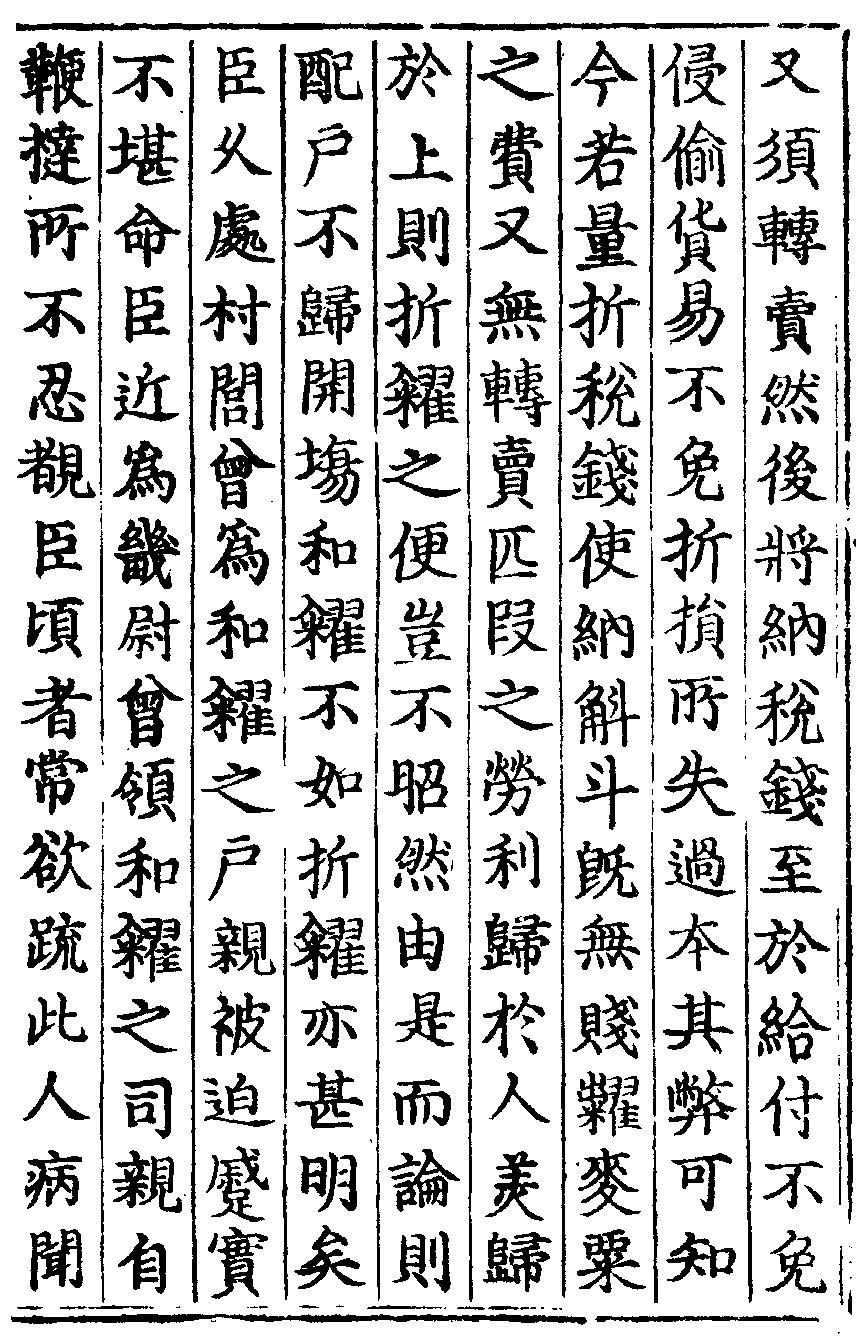 又須轉賣然後將納稅錢至於給付不免
侵偷貨易不免折損所失過本其弊可知
今若量折稅錢使納斛斗旣無賤糶麥粟
之費又無轉賣匹段之勞利歸於人美歸
於上則折糴之便豈不昭然由是而論則
配戶不歸開塲和糴不如折糴亦甚明矣
臣久處村閭曾爲和糴之戶親被迫蹙實
不堪命臣近爲畿尉曾領和糴之司親自
鞭撻所不忍覩臣頃者常欲疏此人病聞